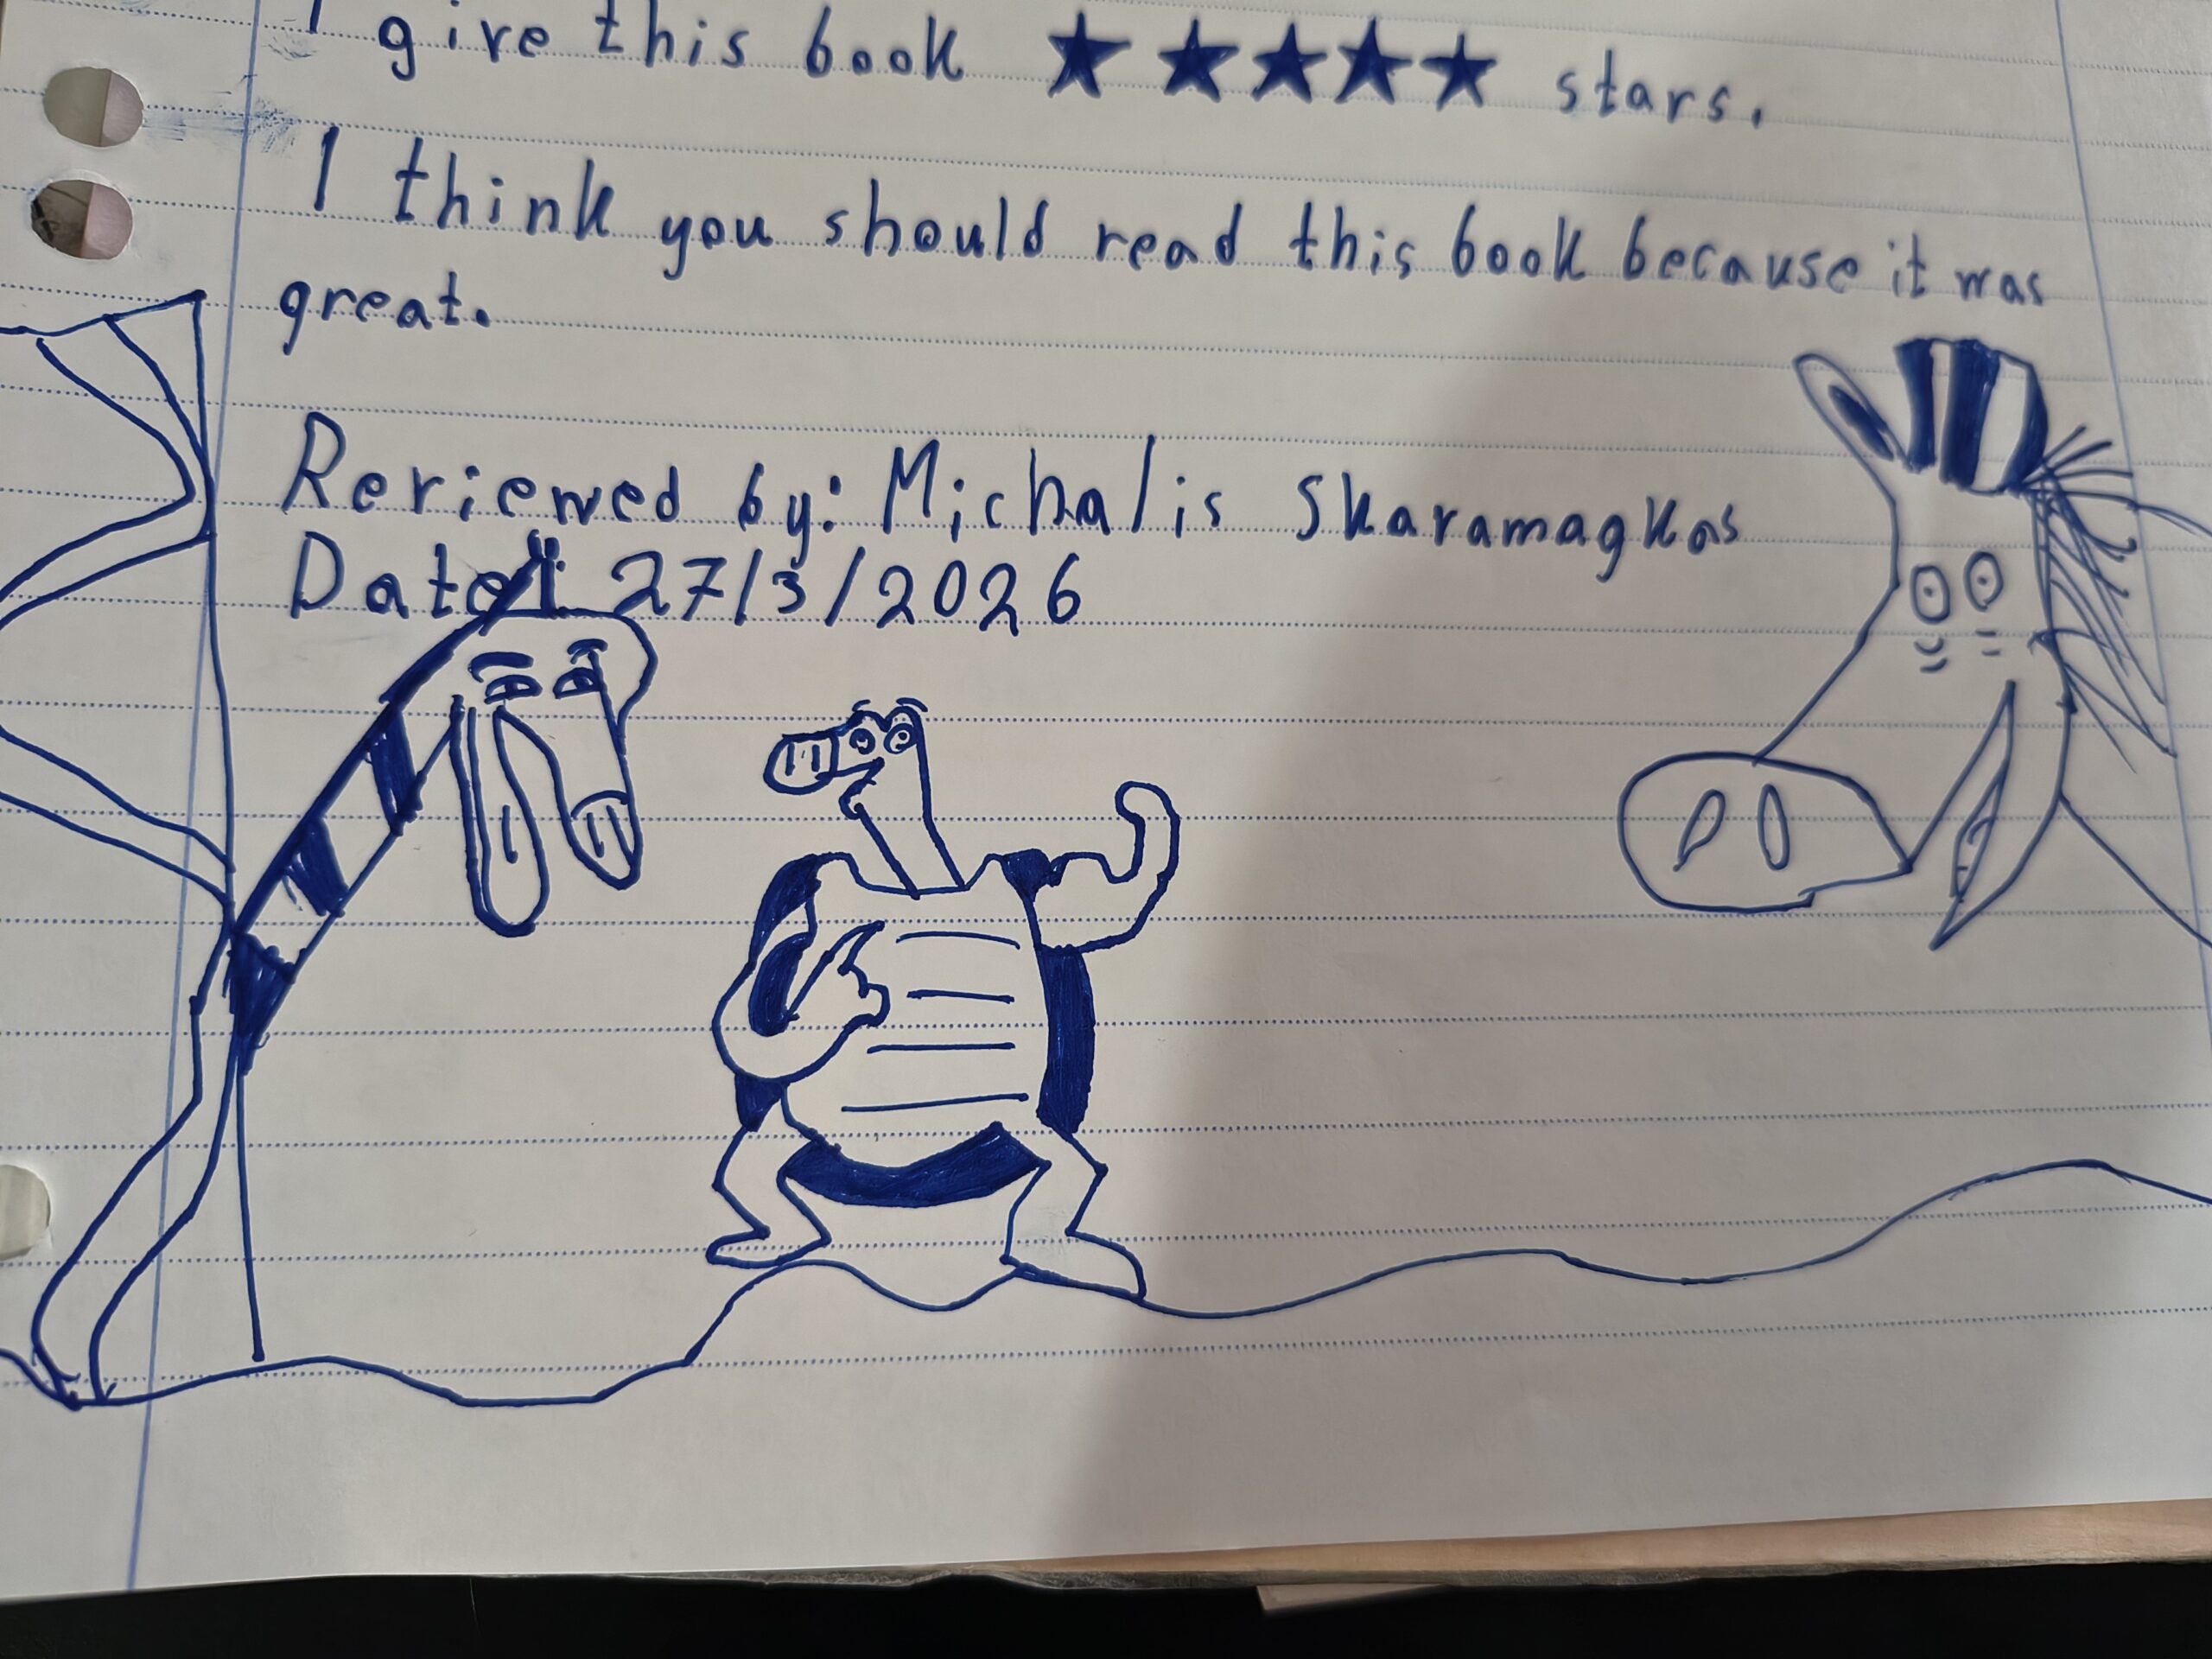 I give this book ★ ★ ★ ★ ★ stars.
I think you should read this book because it was
great.
Reviewed by: Michalis Skaramagkas
Date: 27/3/2026